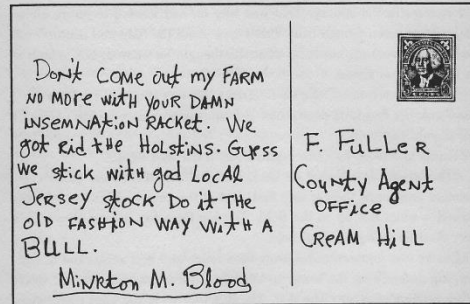 Don't come out my FARM
no more with your DAMN
insemnation RACKET. We
got rid the HOLSTINS. Guess
we stick with god Local
Jersey stock Do it the
old FASHION WAY WITH A
BULL.
Minkton M. Blood
F. Fuller
County Agent
OFFICE
CREAM Hill